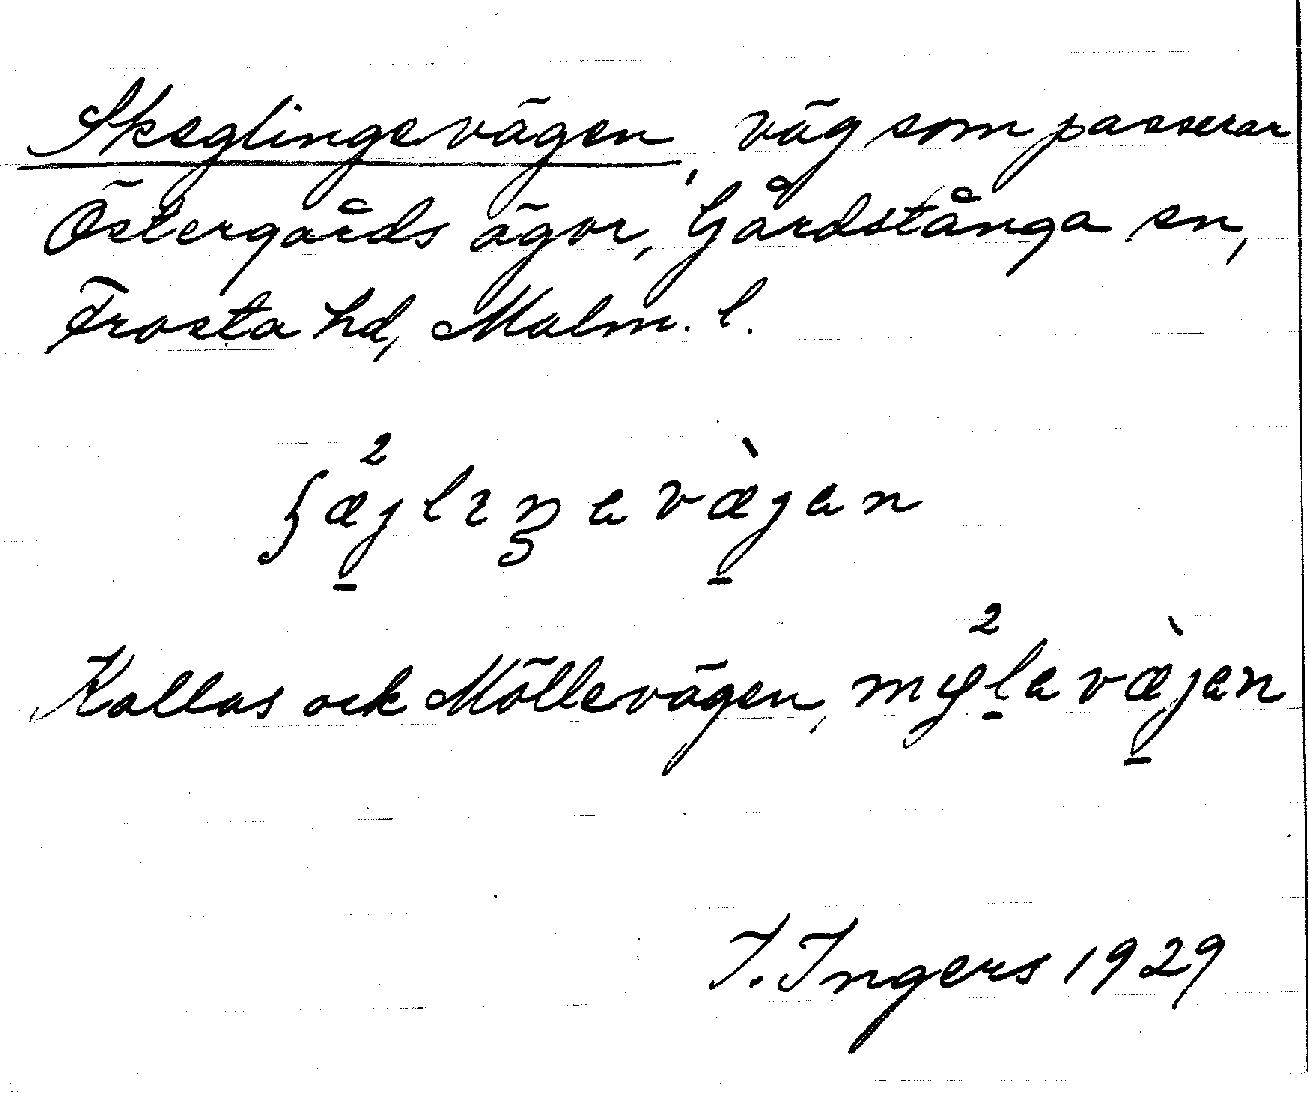 Skeglingevägen, väg som passerar
Östergårds ägor, Gårdstånga sn,
Frosta hd, Malm. l.
ʃæ²jlıŋavæ̀jan
Kallas ock Möllevägen, mφ²lavæ̀jan
I. Ingers 1929